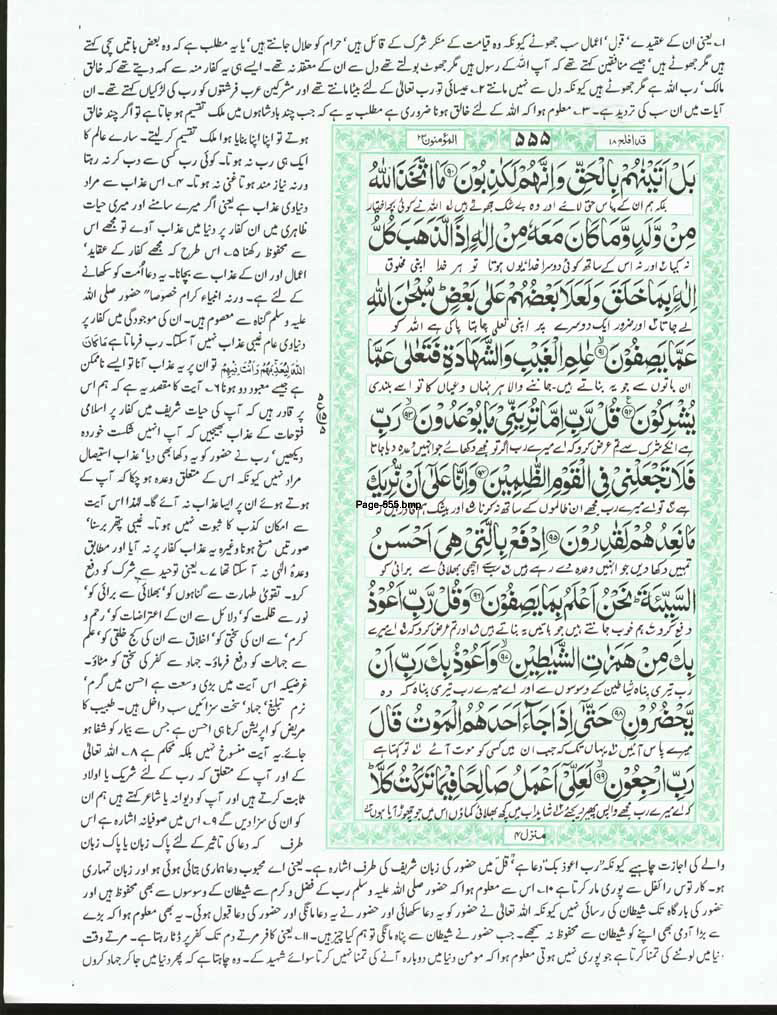 ۱۔ یعنی ان کے عقیدے، قول، اعمال سب جھوٹے کیونکہ وہ قیامت کے منکر شرک کے قائل ہیں، حرام کو حلال جانتے ہیں، یا یہ مطلب ہے کہ وہ بعض باتیں سچی کہتے
ہیں مگر جھوٹے ہیں، جیسے منافقین کہتے تھے کہ آپ اللہ کے رسول ہیں مگر جھوٹ بولتے تھے دل سے ان کے معتقد نہ تھے۔ ایسے ہی یہ کفار منہ سے کہہ دیتے تھے کہ خالق
مالک، رب اللہ ہے مگر جھوٹے ہیں کیونکہ دل سے نہیں مانتے ۲۔ عیسائی تو رب تعالیٰ کے لئے بیٹا مانتے تھے اور مشرکین عرب فرشتوں کو رب کی لڑکیاں کہتے تھے۔ ان
آیات میں ان سب کی تردید ہے۔ ۳۔ معلوم ہوا کہ اللہ کے لئے خالق ہونا ضروری ہے مطلب یہ ہے کہ جب چند بادشاہوں میں ملک تقسیم ہو جاتا ہے تو اگر چند خالق
ہوتے تو اپنا اپنا بنایا ہوا ملک تقسیم کر لیتے۔ سارے عالم کا
ایک ہی رب نہ ہوتا۔ کوئی رب کسی سے دب کر نہ رہتا
ورنہ نیاز مند ہوتا غنی نہ ہوتا۔ ۴۔ اس عذاب سے مراد
دنیاوی عذاب ہے یعنی اگر میرے سامنے اور میری حیات
ظاہری میں ان کفار پر دنیا میں عذاب آوے تو مجھے اس
سے محفوظ رکھنا ۵۔ اس طرح کہ مجھے کفار کے عقاید،
اعمال اور ان کے عذاب سے بچانا۔ یہ دعا اُمت کو سکھانے
کے لئے ہے۔ ورنہ انبیاء کرام خصوصاً حضور صلی اللہ
علیہ وسلم گناہ سے معصوم ہیں۔ ان کی موجودگی میں کفار پر
دنیاوی عام غیبی عذاب نہیں آسکتا۔ رب فرماتا ہے مَا كَانَ
اللّٰهُ لِيُعَذِّبَهُمْ وَاَنْتَ فِيْهِمْ تو ان پر یہ عذاب آنا تو ایسے ناممکن
ہے جیسے معبود دو ہونا ۶۔ آیت کا مقصد یہ ہے کہ ہم اس
پر قادر ہیں کہ آپ کی حیات شریف میں کفار پر اسلامی
فتوحات کے عذاب بھیجیں کہ آپ انہیں شکست خوردہ
دیکھیں، رب نے حضور کو یہ دکھا بھی دیا، عذاب استیصال
مراد نہیں کیونکہ اس کے متعلق وعدہ ہو چکا کہ آپ کے
ہوتے ہوئے ان پر ایسا عذاب نہ آئے گا۔ لہٰذا اس آیت
سے امکان کذب کا ثبوت نہیں ہوتا۔ غیبی پتھر برسنا،
صورتیں مسخ ہونا وغیرہ یہ عذاب کفار پر نہ آیا اور مطابق
وعدۂ الٰہی نہ آ سکتا تھا ۷۔ یعنی توحید سے شرک کو دفع
کرو۔ تقویٰ طہارت سے گناہوں کو، بھلائی سے برائی کو،
نور سے ظلمت کو، دلائل سے ان کے اعتراضات کو، رحم و
کرم سے ان کی سختی کو، اخلاق سے ان کی کج خلقی کو، علم
سے جہالت کو دفع فرماؤ۔ جہاد سے کفر کی سختی کو مٹاؤ۔
غرضیکہ اس آیت میں بڑی وسعت ہے احسن میں گرم،
نرم تبلیغ، جہاد، سخت سزائیں سب داخل ہیں۔ طبیب کا
مریض کو اپریشن کرنا ہی احسن ہے جس سے بیمار کو شفا ہو
جائے۔ یہ آیت منسوخ نہیں بلکہ محکم ہے ۸۔ اللہ تعالیٰ
کے اور آپ کے متعلق کہ رب کے لئے شریک یا اولاد
ثابت کرتے ہیں اور آپ کو دیوانہ یا شاعر کہتے ہیں ہم ان
کو ان کی سزا دیں گے ۹۔ اس میں صوفیانہ اشارہ ہے اس
طرف کہ دعا کی تاثیر کے لئے پاک زبان یا پاک زبان
قد افلح ۱۸
۵۵۵
المؤمنون ۲۳
بَلْ اَتَيْنٰهُمْ بِالْحَقِّ وَاِنَّهُمْ لَكٰذِبُوْنَ ﴿۹۰﴾ مَا اتَّخَذَ اللّٰهُ
بلکہ ہم ان کے پاس حق لائے اور وہ بے شک جھوٹے ہیں ۱ اللہ نے کوئی بچہ اختیار
مِنْ وَّلَدٍ وَّمَا كَانَ مَعَهٗ مِنْ اِلٰهٍ اِذًا لَّذَهَبَ كُلُّ
نہ کیا ۲ اور نہ اس کے ساتھ کوئی دوسرا خدا یوں ہوتا تو ہر خدا اپنی مخلوق
اِلٰهٍۭ بِمَا خَلَقَ وَلَعَلَا بَعْضُهُمْ عَلٰى بَعْضٍ سُبْحٰنَ اللّٰهِ
لے جاتا ۳ اور ضرور ایک دوسرے پر اپنی تعلی چاہتا پاکی ہے اللہ کو
عَمَّا يَصِفُوْنَ ﴿۹۱﴾ عٰلِمِ الْغَيْبِ وَالشَّهَادَةِ فَتَعٰلٰى عَمَّا
ان باتوں سے جو یہ بناتے ہیں، جاننے والا ہر نہاں و عیاں کا تو اسے بلندی
يُشْرِكُوْنَ ﴿۹۲﴾ قُلْ رَّبِّ اِمَّا تُرِيَنِّيْ مَا يُوْعَدُوْنَ ﴿۹۳﴾ رَبِّ
ہے انکے شرک سے تم عرض کرو کہ اے میرے رب اگر تو مجھے دکھائے جو انہیں وعدہ دیا جاتا
فَلَا تَجْعَلْنِيْ فِي الْقَوْمِ الظّٰلِمِيْنَ ﴿۹۴﴾ وَاِنَّا عَلٰى اَنْ نُّرِيَكَ
ہے ۴ تو اے میرے رب مجھے ان ظالموں کے ساتھ نہ کرنا ۵ اور بیشک ہم قادر ہیں کہ
Page-555.bmp
مَا نَعِدُهُمْ لَقٰدِرُوْنَ ﴿۹۵﴾ اِدْفَعْ بِالَّتِيْ هِيَ اَحْسَنُ
تمہیں دکھا دیں جو انہیں وعدہ دے رہے ہیں ۶ سب سے اچھی بھلائی سے برائی کو
السَّيِّئَةَ نَحْنُ اَعْلَمُ بِمَا يَصِفُوْنَ ﴿۹۶﴾ وَقُلْ رَّبِّ اَعُوْذُ
دفع کرو ۷ ہم خوب جانتے ہیں جو باتیں یہ بناتے ہیں ۸ اور تم عرض کرو کہ ۹ اے میرے
بِكَ مِنْ هَمَزٰتِ الشَّيٰطِيْنِ ﴿۹۷﴾ وَاَعُوْذُ بِكَ رَبِّ اَنْ
رب تیری پناہ شیاطین کے وسوسوں سے اور اے میرے رب تیری پناہ کہ وہ
يَّحْضُرُوْنِ ﴿۹۸﴾ حَتّٰى اِذَا جَآءَ اَحَدَهُمُ الْمَوْتُ قَالَ
میرے پاس آئیں ۱۰ یہاں تک کہ جب ان میں کسی کو موت آئے تو کہتا ہے
رَبِّ ارْجِعُوْنِ ﴿۹۹﴾ لَعَلِّيْ اَعْمَلُ صَالِحًا فِيْمَا تَرَكْتُ كَلَّا
کہ اے میرے رب مجھے واپس پھیر دیجئے ۱۱ شاید اب میں کچھ بھلائی کماؤں اس میں جو چھوڑ آیا ہوں
منزل ۴
والے کی اجازت چاہیے کیونکہ رب اعوذ بک دعا ہے، قل میں حضور کی زبان شریف کی طرف اشارہ ہے۔ یعنی اے محبوب دعا ہماری بتائی ہوئی ہو اور زبان تمہاری
ہو۔ کارتوس رائفل سے پوری مار کرتا ہے ۱۰۔ اس سے معلوم ہوا کہ حضور صلی اللہ علیہ وسلم رب کے فضل و کرم سے شیطان کے وسوسوں سے بھی محفوظ ہیں اور
حضور کی بارگاہ تک شیطان کی رسائی نہیں کیونکہ اللہ تعالیٰ نے حضور کو یہ دعا سکھائی اور حضور نے یہ دعا مانگی اور حضور کی دعا قبول ہوئی۔ یہ بھی معلوم ہوا کہ بڑے
سے بڑا آدمی بھی اپنے کو شیطان سے محفوظ نہ سمجھے۔ جب حضور نے شیطان سے پناہ مانگی تو ہم کیا چیز ہیں۔ ۱۱۔ یعنی کافر مرتے دم تک کفر پر ڈٹا رہتا ہے۔ مرتے وقت
دنیا میں لوٹنے کی تمنا کرتا ہے جو پوری نہیں ہوتی معلوم ہوا کہ مومن دنیا میں دوبارہ آنے کی تمنا نہیں کرتا سوائے شہید کے۔ وہ چاہتا ہے کہ پھر دنیا میں جا کر جہاد کروں